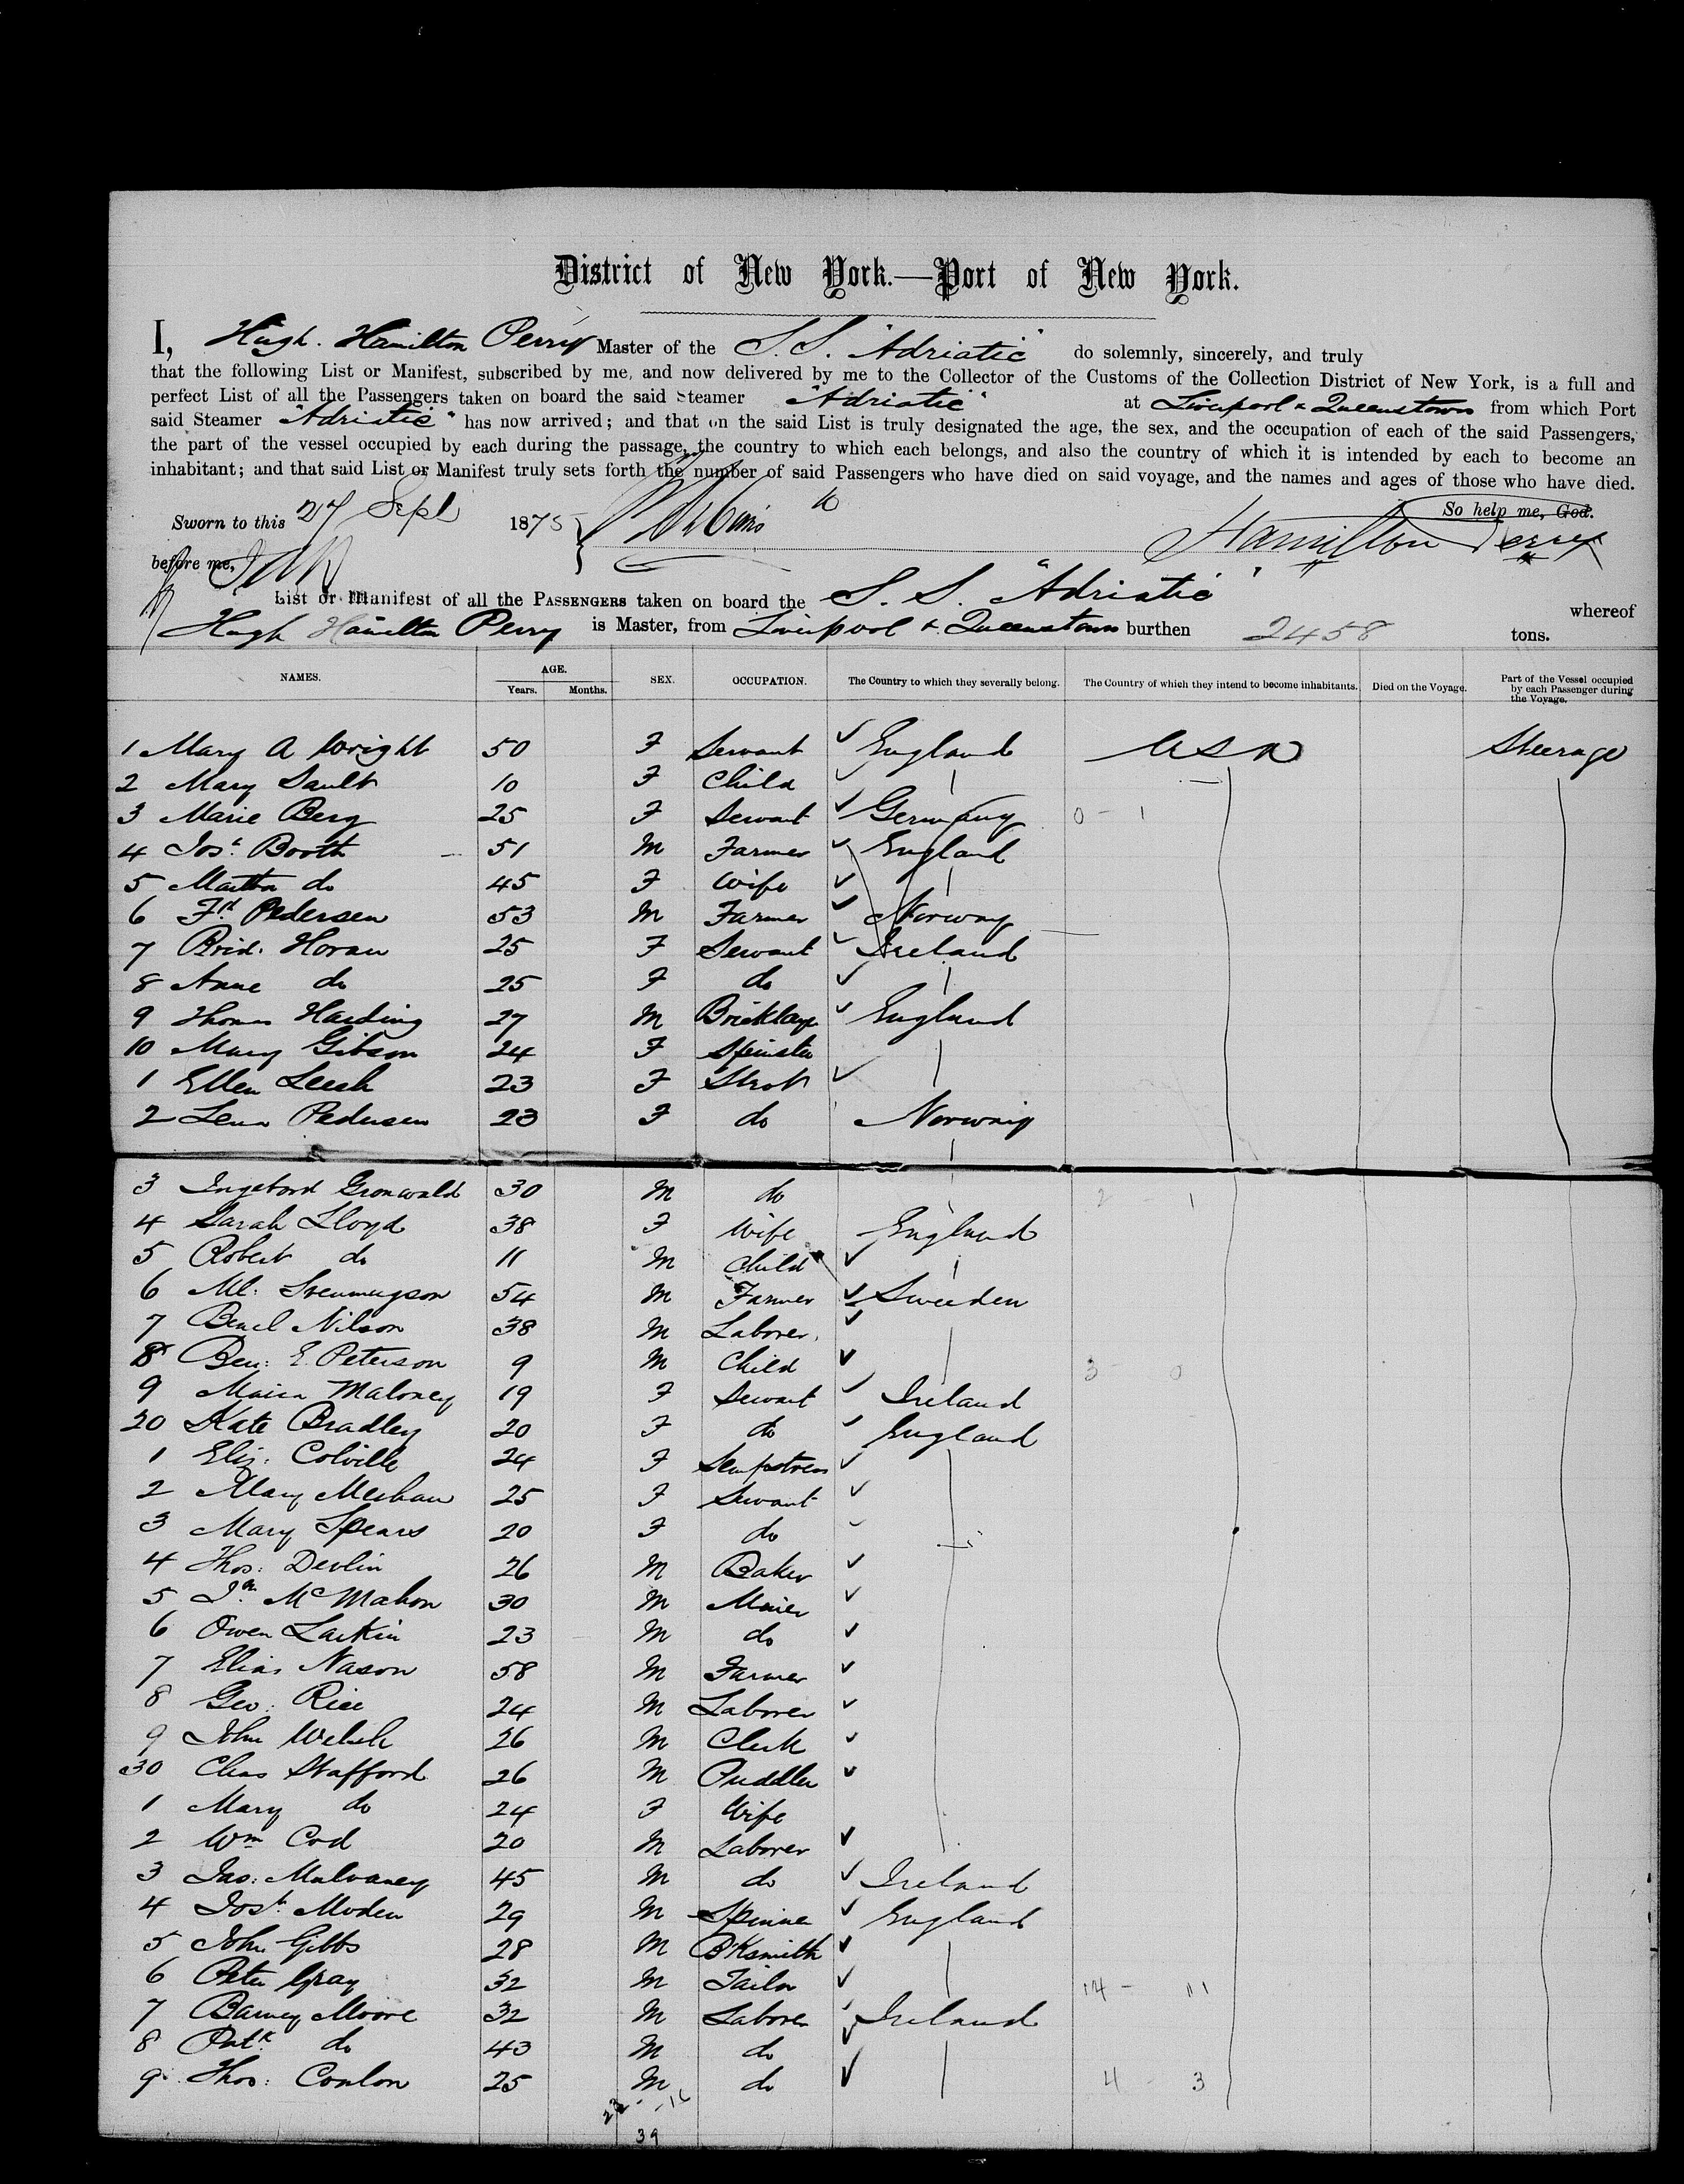 District of New York.—Port of New York.
I, Hugh. Hamilton Perry Master of the S. S. "Adriatic" do solemnly, sincerely, and truly
that the following List or Manifest, subscribed by me, and now delivered by me to the Collector of the Customs of the Collection District of New York, is a full and
perfect List of all the Passengers taken on board the said Steamer "Adriatic" at Liverpool & Queenstown from which Port
said Steamer "Adriatic" has now arrived; and that on the said List is truly designated the age, the sex, and the occupation of each of the said Passengers,
the part of the vessel occupied by each during the passage, the country to which each belongs, and also the country of which it is intended by each to become an
inhabitant; and that said List or Manifest truly sets forth the number of said Passengers who have died on said voyage, and the names and ages of those who have died.
So help me, God.
Sworn to this 27 Sept 1875 Hamilton Perry
before me,
List or Manifest of all the PASSENGERS taken on board the S. S. "Adriatic" whereof
Hugh Hamilton Perry is Master, from Liverpool & Queenstown burthen 2458 tons.
NAMES. AGE. Years. Months. SEX. OCCUPATION. The Country to which they severally belong. The Country of which they intend to become inhabitants. Died on the Voyage. Part of the Vessel occupied by each Passenger during the Voyage.
1 Mary A Wright 50 F Servant England USA Steerage
2 Mary Sault 10 F Child
3 Marie Berg 25 F Servant Germany 0 - 1
4 Josh. Booth 51 M Farmer England
5 Martha do 45 F Wife
6 Fd. Pedersen 53 M Farmer Norway
7 Brid. Horan 25 F Servant Ireland
8 Anne do 25 F do
9 Thomas Harding 27 M Bricklayer England
10 Mary Gibson 24 F Spinster
1 Ellen Leech 23 F
2 Lena Pedersen 23 F do Norway
3 Ingebord Gronwald 30 M do 2 1
4 Sarah Lloyd 38 F Wife England
5 Robert do 11 M Child
6 Ml. 54 M Farmer Sweden
7 Nilson 38 M Laborer
8 Ben: E. Peterson 9 M Child 3 - 0
9 Maria Maloney 19 F Servant Ireland
20 Kate Bradley 20 F do England
1 Eliz. Colville 24 F Sempstress
2 Mary Meehan 25 F Servant
3 Mary Spears 20 F do
4 Thos: Devlin 26 M Baker
5 McMahon 30 M Miner
6 Owen Larkin 23 M do
7 Elias Nason 58 M Farmer
8 Geo: Rice 24 M Laborer
9 John Welsh 26 M Clerk
30 Chas Stafford 26 M Puddler
1 Mary do 24 F Wife
2 Wm Cod 20 M Laborer
3 Jas: Mulvaney 45 M do Ireland
4 Josh. Moden 29 M Spinner England
5 John Gibbs 28 M B'Ksmith
6 Peter Gray 32 M Tailor 14 - 11
7 Barney Moore 32 M Laborer Ireland
8 Patk. do 43 M do
9 Thos: Conlon 25 M do 4 - 3
23 - 16
39